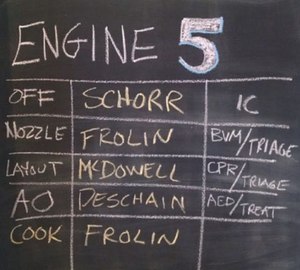 ENGINE 5
OFF SCHORR IC
NOZZLE FROLIN BVM/TRIAGE
LAYOUT MCDOWELL CPR/TRIAGE
AO DESCHAIN AED/TREAT
COOK FROLIN